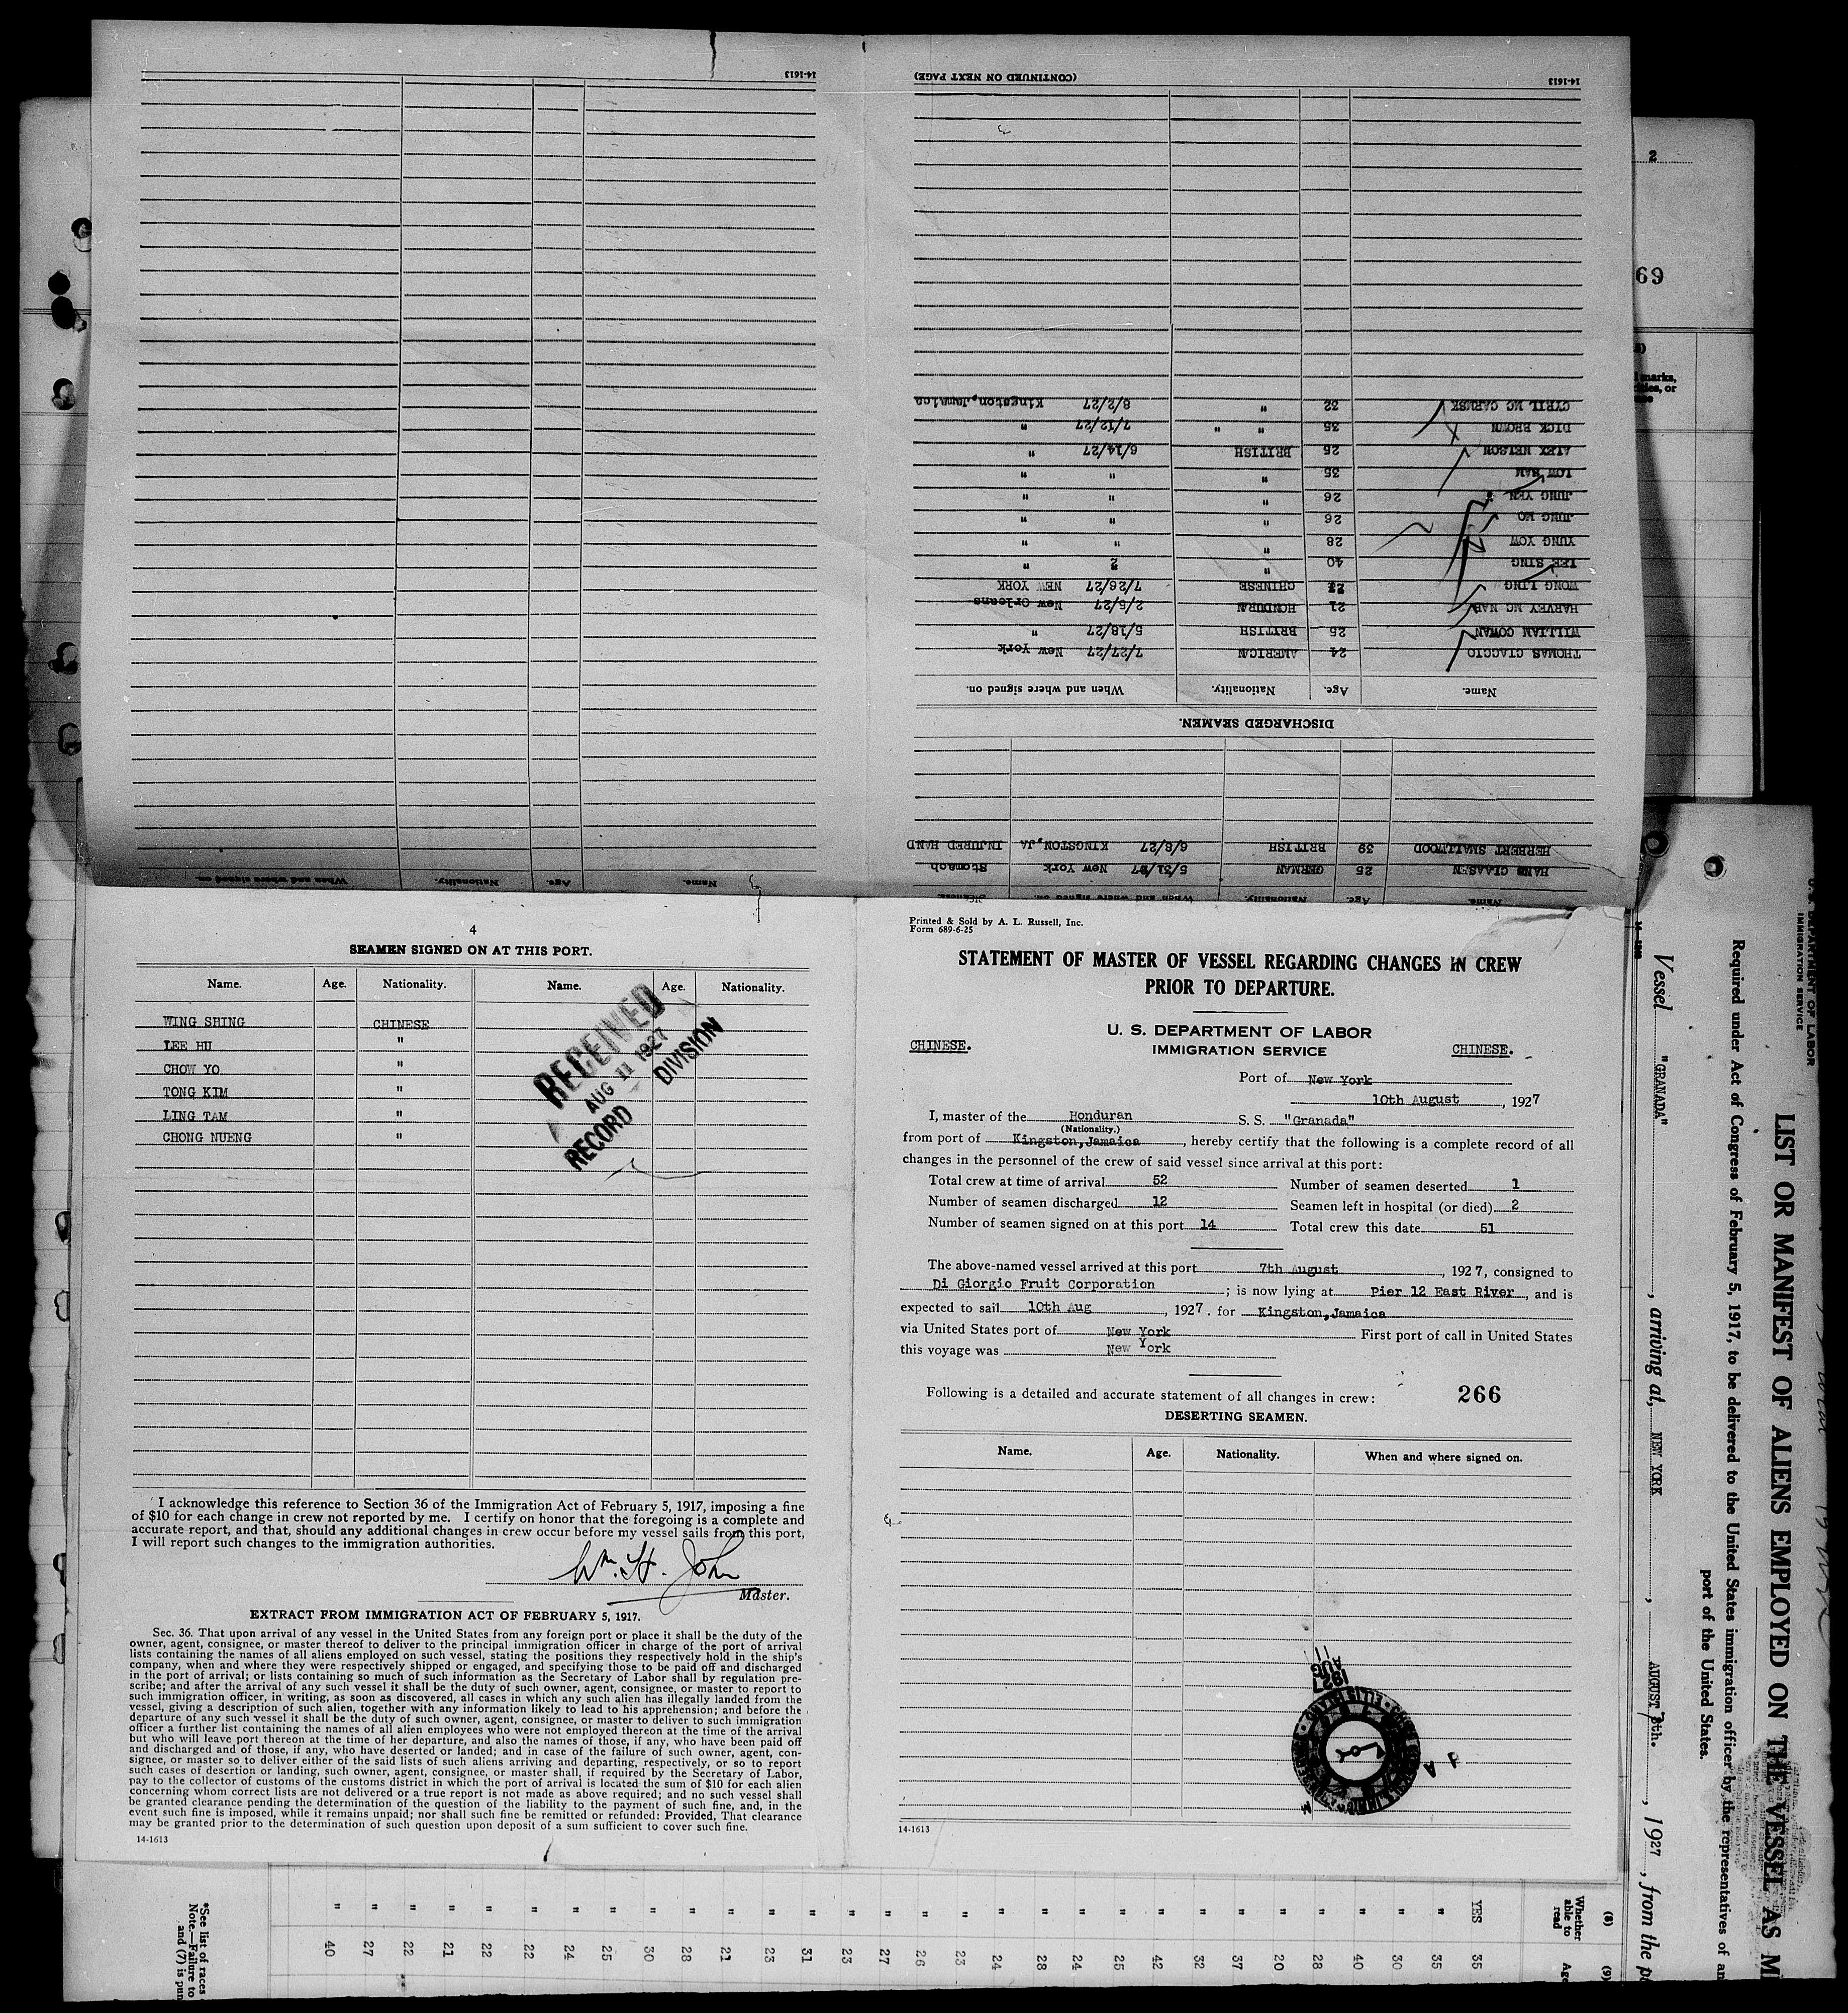 4
SEAMEN SIGNED ON AT THIS PORT.
Name. Age. Nationality. Name. Age. Nationality.
WING SHING CHINESE
LEE HU "
CHOW YO "
TONG KIM "
LING TAM "
CHONG NUENG "
RECEIVED
AUG 11 1927
RECORD DIVISION
I acknowledge this reference to Section 36 of the Immigration Act of February 5, 1917, imposing a fine
of $10 for each change in crew not reported by me. I certify on honor that the foregoing is a complete and
accurate report, and that, should any additional changes in crew occur before my vessel sails from this port,
I will report such changes to the immigration authorities.
Wm. H. John
Master.
EXTRACT FROM IMMIGRATION ACT OF FEBRUARY 5, 1917.
Sec. 36. That upon arrival of any vessel in the United States from any foreign port or place it shall be the duty of the
owner, agent, consignee, or master thereof to deliver to the principal immigration officer in charge of the port of arrival
lists containing the names of all aliens employed on such vessel, stating the positions they respectively hold in the ship's
company, when and where they were respectively shipped or engaged, and specifying those to be paid off and discharged
in the port of arrival; or lists containing so much of such information as the Secretary of Labor shall by regulation pre-
scribe; and after the arrival of any such vessel it shall be the duty of such owner, agent, consignee, or master to report to
such immigration officer, in writing, as soon as discovered, all cases in which any such alien has illegally landed from the
vessel, giving a description of such alien, together with any information likely to lead to his apprehension; and before the
departure of any such vessel it shall be the duty of such owner, agent, consignee, or master to deliver to such immigration
officer a further list containing the names of all alien employees who were not employed thereon at the time of the arrival
but who will leave port thereon at the time of her departure, and also the names of those, if any, who have been paid off
and discharged and of those, if any, who have deserted or landed; and in case of the failure of such owner, agent, con-
signee, or master so to deliver either of the said lists of such aliens arriving and departing, respectively, or so to report
such cases of desertion or landing, such owner, agent, consignee, or master shall, if required by the Secretary of Labor,
pay to the collector of customs of the customs district in which the port of arrival is located the sum of $10 for each alien
concerning whom correct lists are not delivered or a true report is not made as above required; and no such vessel shall
be granted clearance pending the determination of the question of the liability to the payment of such fine, and, in the
event such fine is imposed, while it remains unpaid; nor shall such fine be remitted or refunded: Provided, That clearance
may be granted prior to the determination of such question upon deposit of a sum sufficient to cover such fine.
14-1613
Printed & Sold by A. L. Russell, Inc.
Form 689-6-25
STATEMENT OF MASTER OF VESSEL REGARDING CHANGES IN CREW
PRIOR TO DEPARTURE.
U. S. DEPARTMENT OF LABOR
CHINESE. IMMIGRATION SERVICE CHINESE.
Port of New York
10th August, 1927
I, master of the Honduran S. S. "Granada"
(Nationality.)
from port of Kingston, Jamaica, hereby certify that the following is a complete record of all
changes in the personnel of the crew of said vessel since arrival at this port:
Total crew at time of arrival 52 Number of seamen deserted 1
Number of seamen discharged 12 Seamen left in hospital (or died) 2
Number of seamen signed on at this port 14 Total crew this date 51
The above-named vessel arrived at this port 7th August, 1927, consigned to
Di Giorgio Fruit Corporation; is now lying at Pier 12 East River, and is
expected to sail 10th Aug, 1927. for Kingston, Jamaica
via United States port of New York First port of call in United States
this voyage was New York
Following is a detailed and accurate statement of all changes in crew: 266
DESERTING SEAMEN.
Name. Age. Nationality. When and where signed on.
AUG 11 1927
14-1613
Name. Age. Nationality. When and where signed on. Disease.
HANS CLAASEN 25 GERMAN 5/31/27 New York Stomach
HERBERT SMALLWOOD 39 BRITISH 6/8/27 KINGSTON, JA INJURED HAND
DISCHARGED SEAMEN.
Name. Age. Nationality. When and where signed on.
THOMAS CIACCIO 24 AMERICAN 7/27/27 New York
WILLIAN COWAN 25 BRITISH 5/18/27 "
HARVEY MC NAB 21 HONDURAN 2/5/27 New Orleans
WONG LING CHINESE 7/26/27 NEW YORK
LEE SING 40 " " "
YUNG YOW 28 " " "
JUNG MO 26 " " "
JUNG YEN 26 " " "
LOW NAM 35 " " "
ALEX NELSON 25 BRITISH 6/14/27 "
DICK BROWN 35 " " 7/12/27 "
CYRIL MC CARMSK 32 " 8/2/27 Kingston, Jamaica
14-1613
(CONTINUED ON NEXT PAGE)
Name. Age. Nationality. When and where signed on.
14-1613
2
69
marks,
U. S. DEPARTMENT OF LABOR
IMMIGRATION SERVICE
LIST OR MANIFEST OF ALIENS EMPLOYED ON THE VESSEL AS M
Required under Act of Congress of February 5, 1917, to be delivered to the United States immigration officer by the representatives of an
port of the United States.
Vessel "GRANADA", arriving at, NEW YORK, AUGUST 7th., 1927, from the p
(8) (9)
Whether able to read Age
YES " " " " " " " " " " " " " " " " " " " " " " " " " " " "
35 35 30 40 28 20 37 32 42 25 24 28 24 23 26 27 23 31 23 21 28 30 25 24 22 22 21 22 27 40
*See list of races
Note.—Failure to
and (7) is pun